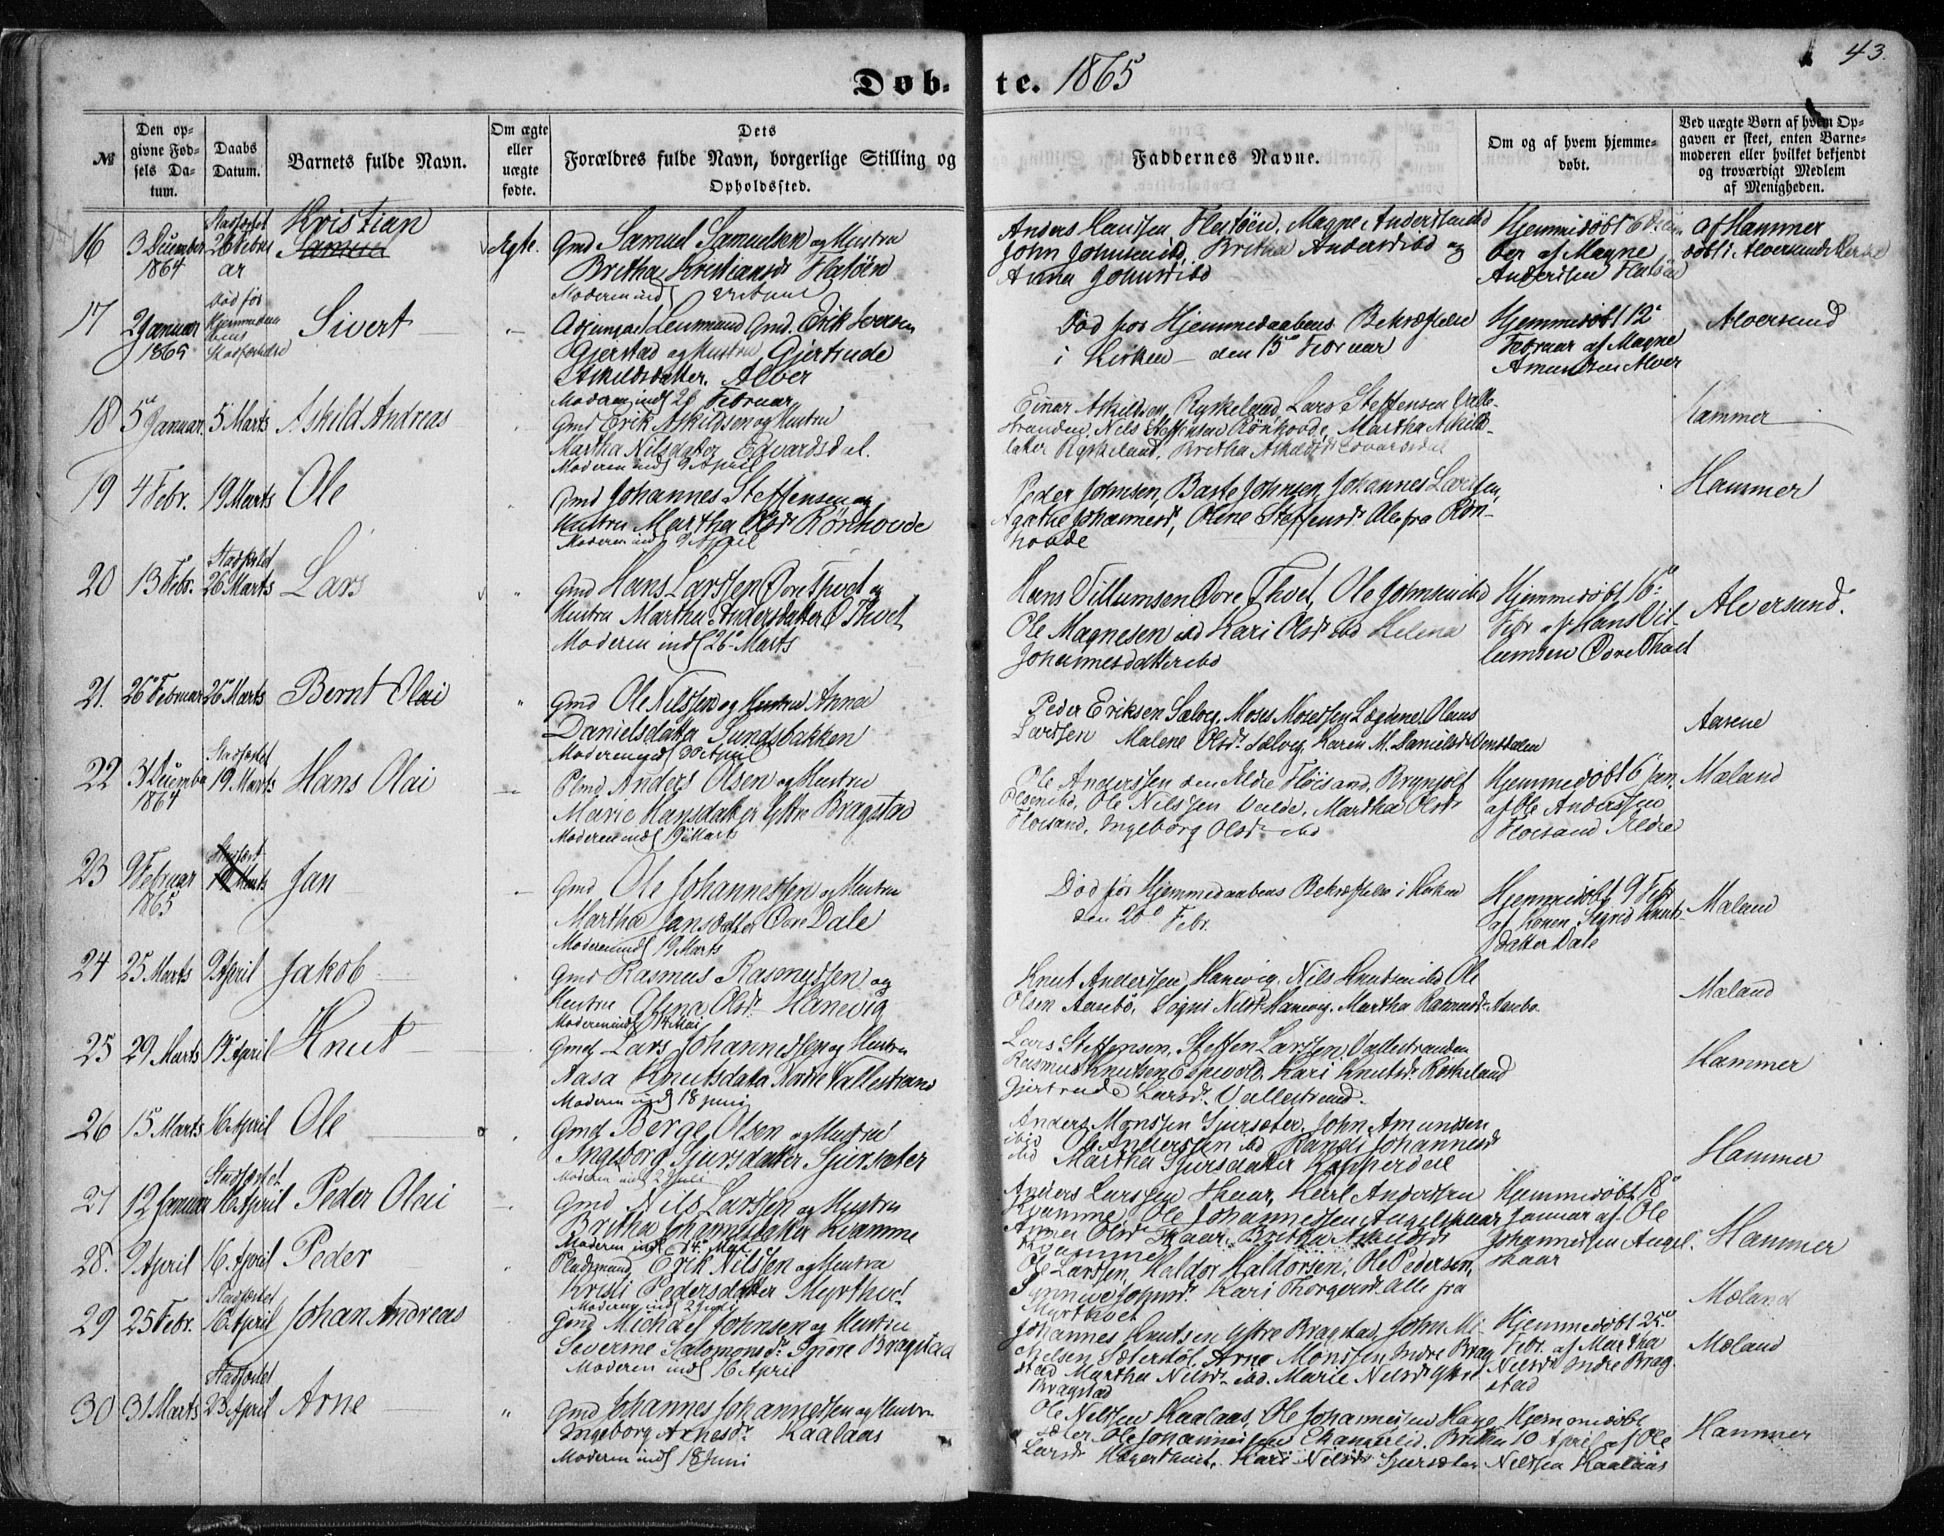 43.
Døb- te. 1865
№
Den opgivne Fødsels Datum.
Daabs Datum.
Barnets fulde Navn.
Om ægte eller uægte fødte.
Dets Forældres fulde Navn, borgerlige Stilling og Opholdssted.
Faddernes Navne.
Om og af hvem hjemmedøbt.
Ved uægte Børn af hvem Opgaven er skeet, enten Barnemoderen eller hvilket bekjendt og troværdigt Medlem af Menigheden.
16 3 December 1864 Stadfæstet 26 Februar Kristian Samuel Ægte.
Gmd Samuel Samuelsen og Hustru
Britha Kristiansd Flatøen
Moderen indl
Anders Hanssen Flatøen, Magne Anderssen ibd
John Johnsen ibd, Britha Andersd ibd og
Anna Johnsd ibd
Hjemmedøbt 6 December af Magne
Anderssen Flatøen
af Hammer
døbt i Alversunds Kirke
17 2 Januar 1865 Død før Hjemmedaabens Stadfæstelse Sivert "
Lensmand Gmd. Erik Iversen
Gjerstad og Hustru Gjertrude
Askildsdatter. Alver
Moderen indl 26 Februar
Død før Hjemmedaabens Bekræftelse
i Kirken den 15 Februar
Hjemmedøbt 12
Februar af Magne
Amundsen Alver
Alversund
18 5 Januar. 5 Marts Askild Andreas
Gmd Erik Askildsen og Hustru
Martha Nilsdatter Edvardsdal.
Moderen indl 9 April
Einar Askildsen, Ryskeland, Lars Steffensen
stranden, Nils Steffensen Rønhovde, Martha Askildsdatter Ryskeland, Britha Askildsd Edvardsdal
Hammer
19 4 Febr. 19 Marts Ole
Gmd Johannes Steffensen og
Hustru Martha Olsd Rønhovde
Moderen indl 9 April
Peder Johnsen, Baste Johnsen, Johannes Larssen,
Agathe Johannesd, Oline Steffensd Alle fra Rønhovde
Hammer
20 13 Febr. Stadfæstet 26 Marts Lars "
Gmd Hans Larssen Øvre Thvet og
Hustru Martha Andersdatter Ø Thvet
Moderen indl 26 Marts
Hans Villumsen Øvre Thvet, Ole Johnsen ibd
Ole Magnesen ibd Kari Olsd ibd Helena
Johannesdatter ibd
Hjemmedøbt 16
Febr af Hans Villumsen Øvre Thvet
Alversund.
21. 26 Februar 26 Marts Bernt Olai "
Gmd Ole Nilssen og Hustru Anna
Danielsdatter Sundsbakken
Moderen indl 30 April
Peder Eriksen Sælvig, Moses Mosessen Løgene, Olaus
Larssen Malene Olsd. Sælvig, Karen M. Danielsd
Aasene
22 31 December 1864 Stadfæstet 19 Marts Hans Olai
Plmd Anders Olsen og Hustru
Marie Hansdatter Ystre Bragstad
Moderen indl 19 Marts
Ole Anderssen den Ældre Floisand, Brynjolf
Olsen ibd, Ole Nilssen Valde, Martha Olsd
Floisand, Ingeborg Olsd ibd
Hjemmedøbt 6 Jan.
af Ole Anderssen
Floisand Ældre
Mæland
23 9 Februar 1865 Stadfæst 19 Marts Jan
Gmd Ole Johannessen og Hustru
Martha Jansdatter Øvre Dale
Moderen indl 19 Marts
Død før Hjemmedaabens Bekræftelse i Kirken
den 20 Febr.
Hjemmedøbt 9 Feb
af Konen Sigrid Knutsdatter Dale
Mæland
24 25 Marts 9 April Jakob
Gmd Rasmus Rasmussen og
Hustru Olsd. Hanevig
Moderen indl 14 Mai
Knut Anderssen, Hanevig, Nils Knutsen ibd Ole
Olsen Aasebø, Signi Nilsd Hanevig, Martha Rasmusd Aasebø
Mæland
25 29 Marts 14 April Knut
Gmd Lars Johannessen og Hustru
Aasa Knutsdatter Nordre Vallestrand
Moderen indl 18 Juni
Lars Steffensen, Steffen Larssen, Vallestranden
Rasmus Knutsen Espevold, Kari Knutsd. Røskeland
Gjertrude Larsd. Vallestrand.
Hammer
26 15 Marts 16 April Ole
Gmd Berge Olsen og Hustru
Ingeborg Sjursdatter Sjursæter
Moderen indl 2 Juli
Anders Monssen Sjursæter, John Amundsen
ibid Ole Anderssen ibd Randi Johannesd
ibd Martha Sjursdatter Kopperdal
Hammer
27 12 Januar Stadfæstet 16 April Peder Olai
Gmd Nils Larssen og Hustru
Britha Johannesdatter Kvamme
Moderen indl 14 Mai
Anders Larssen Skaar, Karl Anderssen
Kvamme Ole Johannessen Angelskaar
Anna Olsd Skaar, Britha
Kvamme
Hjemmedøbt 18
Januar af Ole
Johannessen Angelskaar
Hammer
28. 9 April 16 April Peder
Pladsmand Erik Nilssen og Hustru
Kristi Pedersdatter Myrthvet
Moderen indl 2 Juli
Ole Larssen, Haldor Haldorsen, Ole Pedersen,
Synneve Johnsd. Kari Thorgersd Alle fra
Myrthvet
Mæland
29 25 Febr. Stadfæstet 16 April Johan Andreas
Gmd Michael Johnsen og Hustru
Severine Salomonsd. Bragstad
Moderen indl 16 April
Johannes Knutsen Ystre Bragstad, John Michelsen Sæterstøl, Arne Monssen Indre Bragstad Martha Nilsd ibd. Marie Nilsd Ystre
Bragstad
Hjemmedøbt 25
Febr. af Martha
Nilsd Indre Bragstad
Mæland
30 31 Marts Stadfæstet 23 April Arne "
Gmd Johannes Johannessen og Hustru
Ingeborg Arnesd. Kaalaas
Moderen indl 18 Juni
Ole Nilssen Kaalaas, Ole Johannessen
Ole Johannessen Britha
Larsd Hagerthvet, Kari Nilsd Sjursæter
Hjemmedøbt
10 April af Ole
Nilssen Kaalaas
Hammer